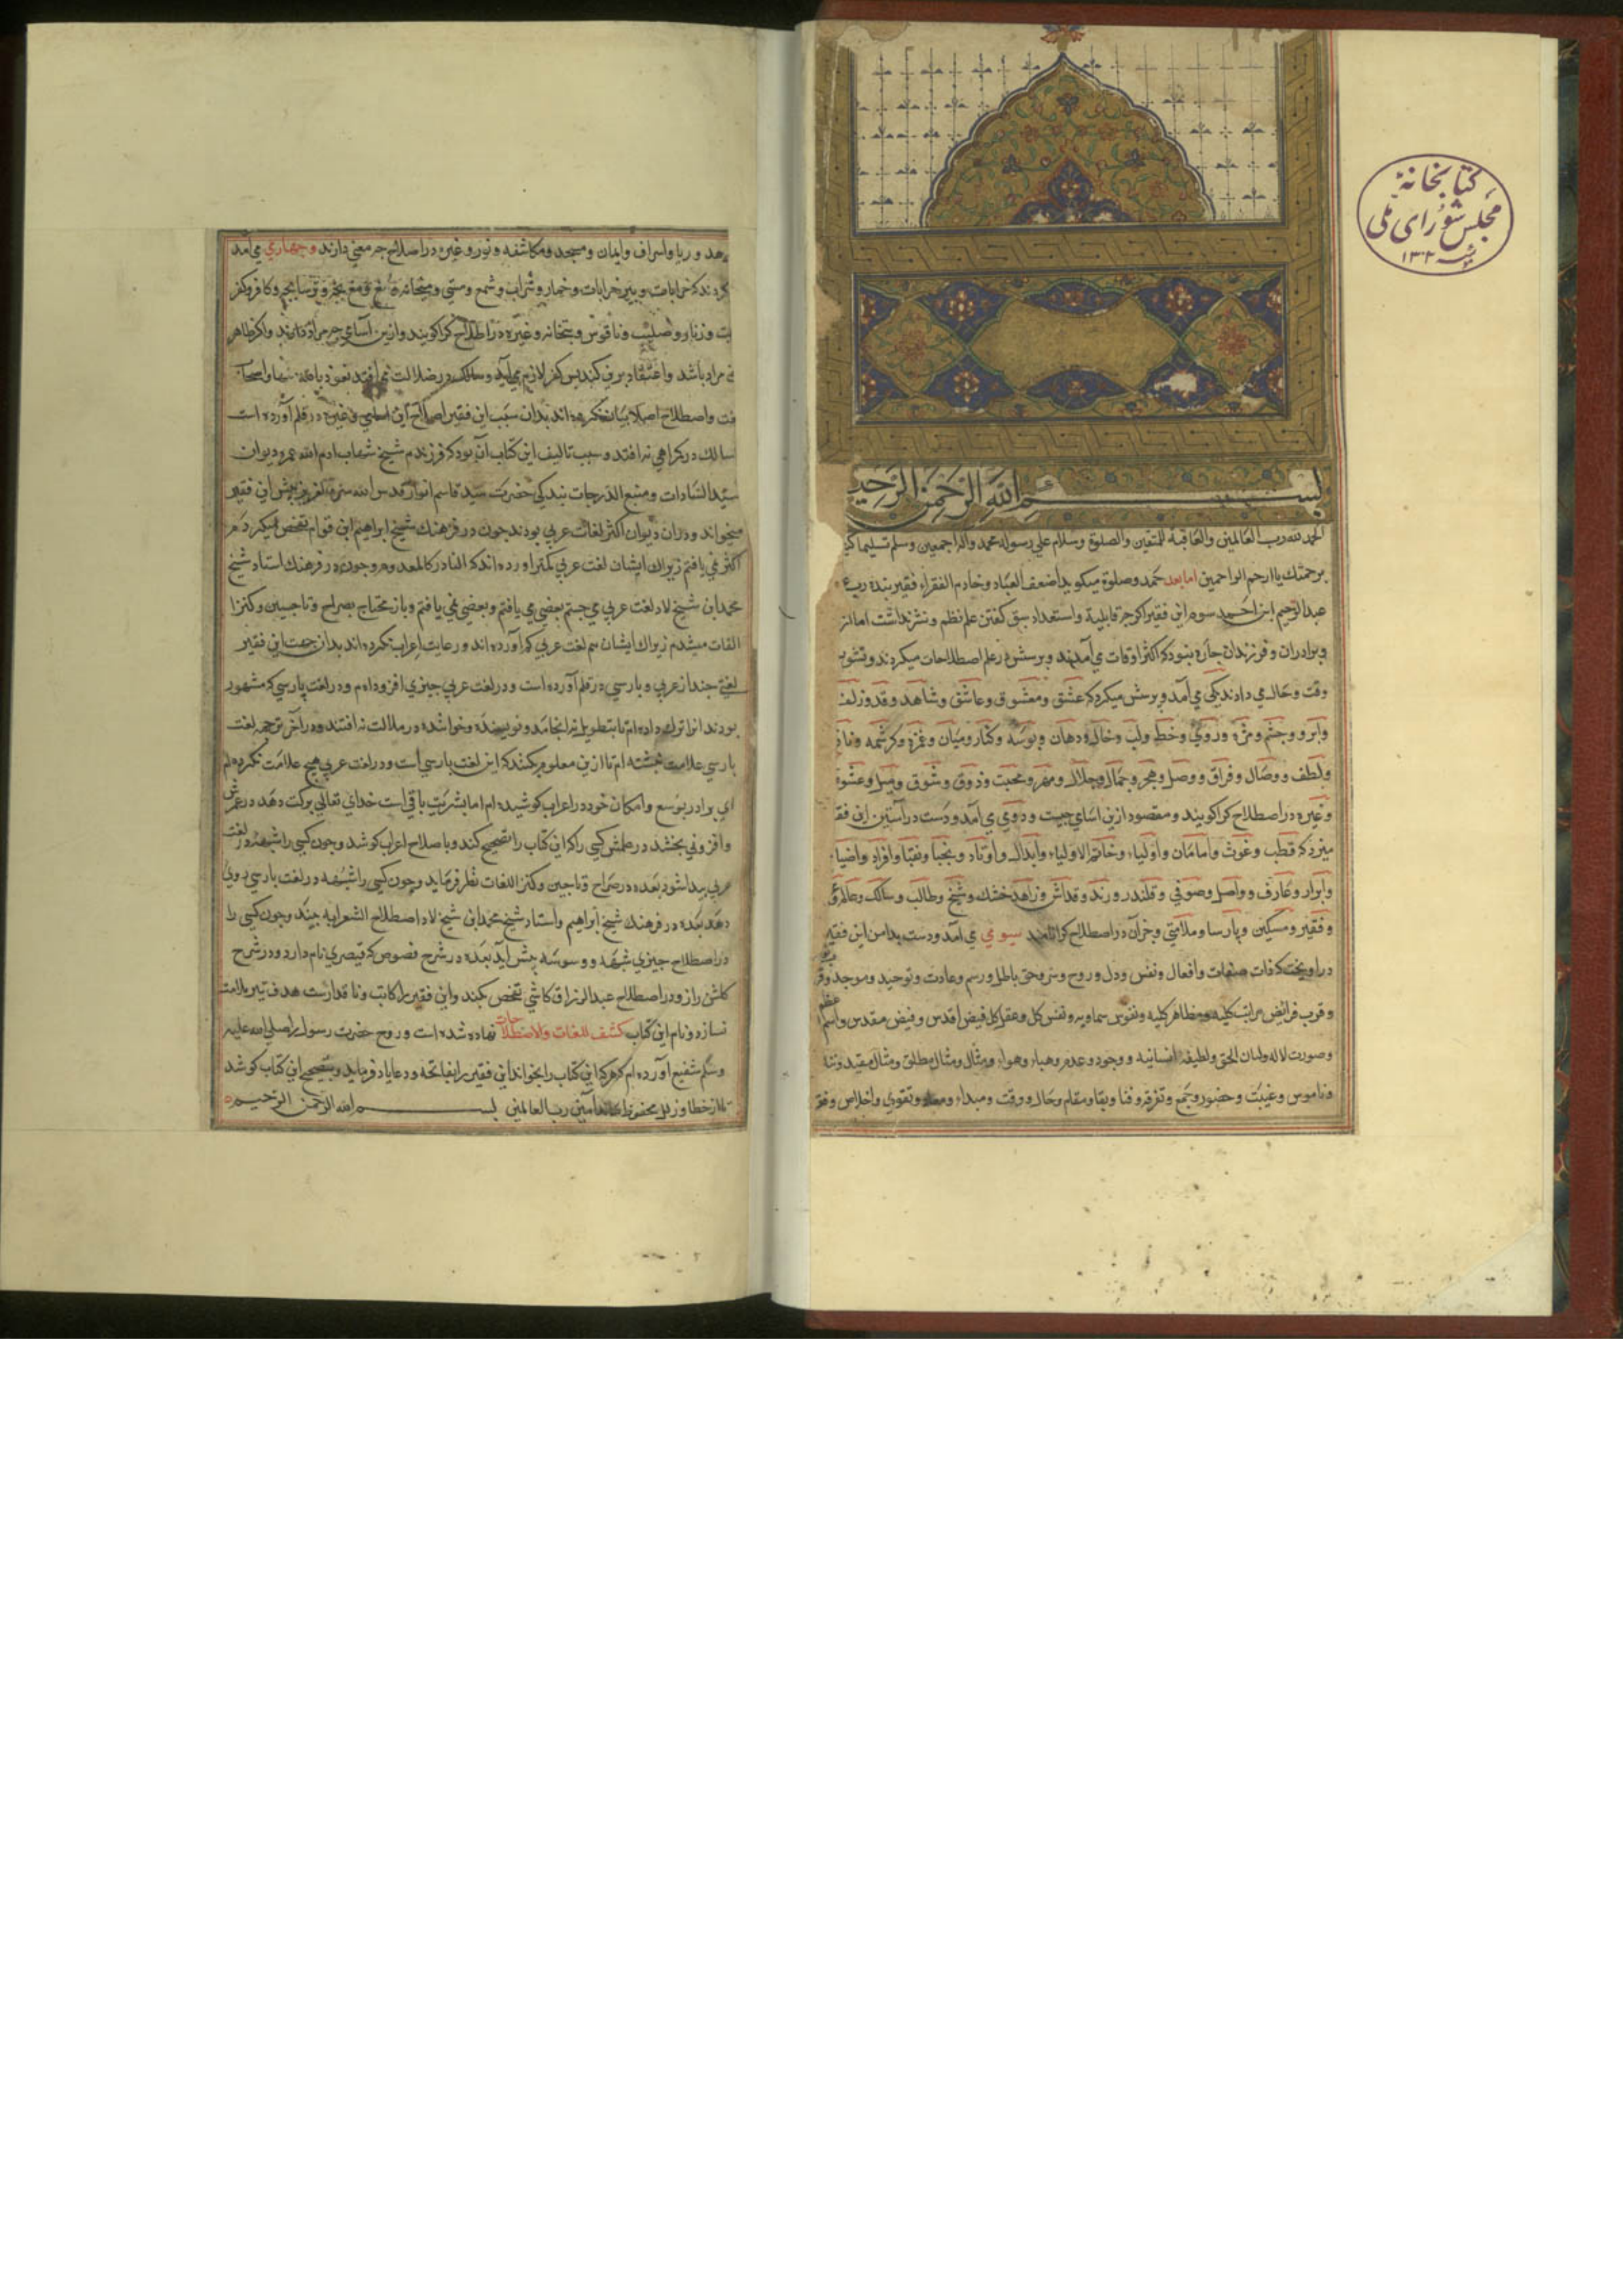 کتابخانهٔ
مجلس شورای ملی
۱۳۰۲
بسم الله الرحمن الرحیم
الحمد لله رب العالمین والعاقبة للمتقین والصلوة وسلام علی رسوله محمد وآله اجمعین وسلم تسلیما
برحمتك یا ارحم الراحمین اما بعد حمد وصلوة میکوید اضعف العباد وخادم الفقراء فقیر بنده
عبدالرحیم ابن احمد سور این فقیر اکرچه قابلیة واستعداد سبق کفتن علم نظم ونثر نداشت اما از
وبرادران وفرزندان چاره نبود که اکثر اوقات می آمدند وپرسش در علم اصطلاحات میکردند وتشویر
وقت وحال می دادند یکی می آمد وپرسش میکرد که عشق ومعشوق وعاشق وشاهد وقد وزلف
وابرو وچشم ومژه وروی وخط ولب وخال ودهان وبوسه وکنار ومیان وغمزه وکرشمه وناز
ولطف ووصال وفراق ووصل وهجر وجمال وجلال ومهر ومحبت وذوق وشوق ومیل وعشوه
وغیره در اصطلاح کرا کویند ومقصود ازین اسامی چیست ودومی می آمد ودست در آستین این
میزد که قطب وغوث وامامان واولیاء وخاتم الاولیاء وابدال واوتاد ونجبا ونقبا وافراد
وابرار وعارف وواصل وصوفی وقلندر ورند وقلاش وزاهد خشك وشیخ وطالب وسالك
وفقیر ومسکین وپارسا وملامتی وجز آن در اصطلاح کرا نامند سیومی می آمد ودست بدامن این فقیر
در اویخت که ذات وصفات وافعال ونفس ودل وروح وسر وحق باطل ورسم وعادت وتوحید وموحد
وقرب فرائض مراتب کلیه ومظاهر کلیه ونفوس سماویه ونفس کل وعقل کل فیض اقدس وفیض مقدس واسم اعظم
وصورت لاله ولسان الحق ولطیفه انسانیه ووجود وعدم وهباء وهواء ومثال ومثال مطلق ومثال مقید
وناموس وغیبت وحضور وجمع وتفرقه وفنا وبقا ومقام وحال ووقت ومبداء ومعاد وتقوی واخلاص
زهد وریا واسراف وایمان ومسجد ومکاشفه ونور وغیره در اصطلاح چه معنی دارند وچهارمی می آمد
کردند که خرابات وپیر خرابات وخمار وشراب وشمع ومستی ومیخانه ومغ ومغ بچه وترسا بچه وکافر وکفر
بت وزنار وصلیب وناقوس وبتخانه وغیره در اصطلاح کرا کویند وازین اسامی چه مراد دارند واکر ظاهر
مراد باشد واعتقاد برین کنند پس کفر لازم می آید وسالك در ضلالت می افتد نعوذ بالله منها
واصطلاح اصلا بیان نکرده اند بدان سبب این فقیر اصطلاح این اسامی وغیره در قلم آورده است
سالك در کمراهی نه افتد وسبب تالیف این کتاب آن بود که فرزندم شیخ شهاب ادام الله عمره دیوان
سید السادات ومنبع الدرجات بندکی حضرت سید قاسم انوار قدس الله سره العزیز پیش این فقیر
میخواند ودران دیوان اکثر لغات عربی بودند چون در فرهنك شیخ ابراهیم ابن قوام تفحص میکردم
اکثر نمی یافتم زیراك ایشان لغت عربی کمتر اورده اند که النادر کالمعدوم وچون در فرهنك استاد شیخ
محمد ابن شیخ لاد لغت عربی می جستم بعضی می یافتم وبعضی نمی یافتم وباز محتاج بصراح وتاجیین وکنز
الغات میشدم زیراك ایشان هم لغت عربی کم آورده اند ورعایت اعراب نکرده اند بدان جهت این فقیر
لغتی چند از عربی وپارسی در قلم آورده است ودر لغت عربی چیزی افزوده ام ودر لغت پارسی که مشهور
بودند انرا ترك داده ام تا بتطویل نه انجامد ونویسنده وخواننده در ملالت نه افتند ودر آخر ترجمه لغت
پارسی علامت نبشته ام تا ازین معلوم کنند که این لغت پارسی است ودر لغت عربی هیچ علامت نکرده ام
ای برادر بوسع وامکان خود در اعراب کوشیده ام اما بشریت باقی است خدای تعالی برکت دهد در عمرش
وافزونی بخشد در علمش کسی را که این کتاب را تصحیح کند وباصلاح اعراب کوشد وچون کسی را شبهه در لغت
عربی پیدا شود بعده در صراح وتاجیین وکنز اللغات نظر فرماید وچون کسی را شبهه در لغت پارسی روی
دهد بعده در فرهنك شیخ ابراهیم واستاد شیخ محمد ابن شیخ لاد اصطلاح الشعرا به بیند وچون کسی را
در اصطلاح چیزی شبهه ووسوسه پیش آید بعده در شرح فصوص که قیصری نام دارد ودر شرح
کلشن راز ودر اصطلاح عبدالرزاق کاشی تفحص بکند واین فقیر را کاتب وناقد است هدف تیر ملامت
نسازد ونام این کتاب کشف اللغات والاصطلاحات نهاده شده است وروح حضرت رسول را صلی الله علیه
وسلم شفیع آورده ام که هر که این کتاب را بخواند این فقیر را بفاتحه ودعا یاد فرماید وبتصحیح این کتاب کوشد
تا از خطا وزلل محفوظ ماند آمین رب العالمین بسم الله الرحمن الرحیم